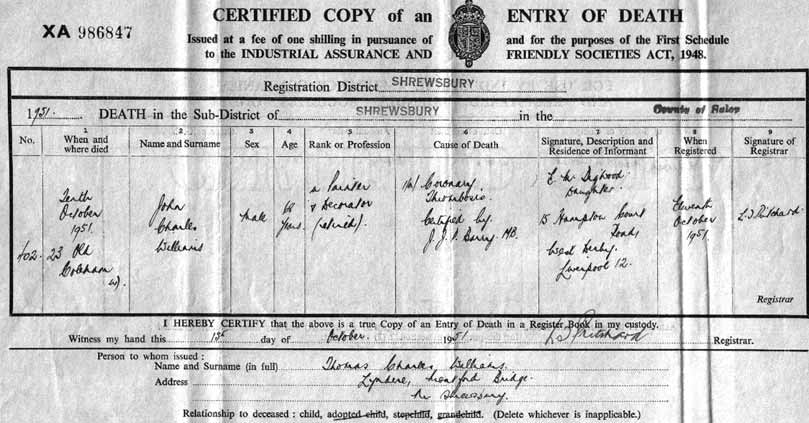 CERTIFIED COPY of an ENTRY OF DEATH
XA 986847
Issued at a fee of one shilling in pursuance of and for the purposes of the First Schedule
to the INDUSTRIAL ASSURANCE AND FRIENDLY SOCIETIES ACT, 1948.
Registration District SHREWSBURY
1951. DEATH in the Sub-District of SHREWSBURY in the County of Salop
1 2 3 4 5 6 7 8 9
No. When and where died Name and Surname Sex Age Rank or Profession Cause of Death Signature, Description and Residence of Informant When Registered Signature of Registrar
402.
Tenth
October
1951.
23 Old
Coleham
John
Charles
Williams
Male
Years
a Painter
& Decorator
(retired)
Coronary
Thrombosis.
Certified by
J. J. Barry MB.
Daughter.
15 Hampton Court
Road,
West Derby,
Liverpool 12.
Eleventh
October
1951
Pritchard
Registrar
I HEREBY CERTIFY that the above is a true Copy of an Entry of Death in a Register Book in my custody.
Witness my hand this 13th day of October. 1951. Pritchard Registrar.
Person to whom issued :
Name and Surname (in full) Thomas Charles Williams.
Address Montford Bridge.
Nr Shrewsbury.
Relationship to deceased : child, adopted child, stepchild, grandchild. (Delete whichever is inapplicable.)